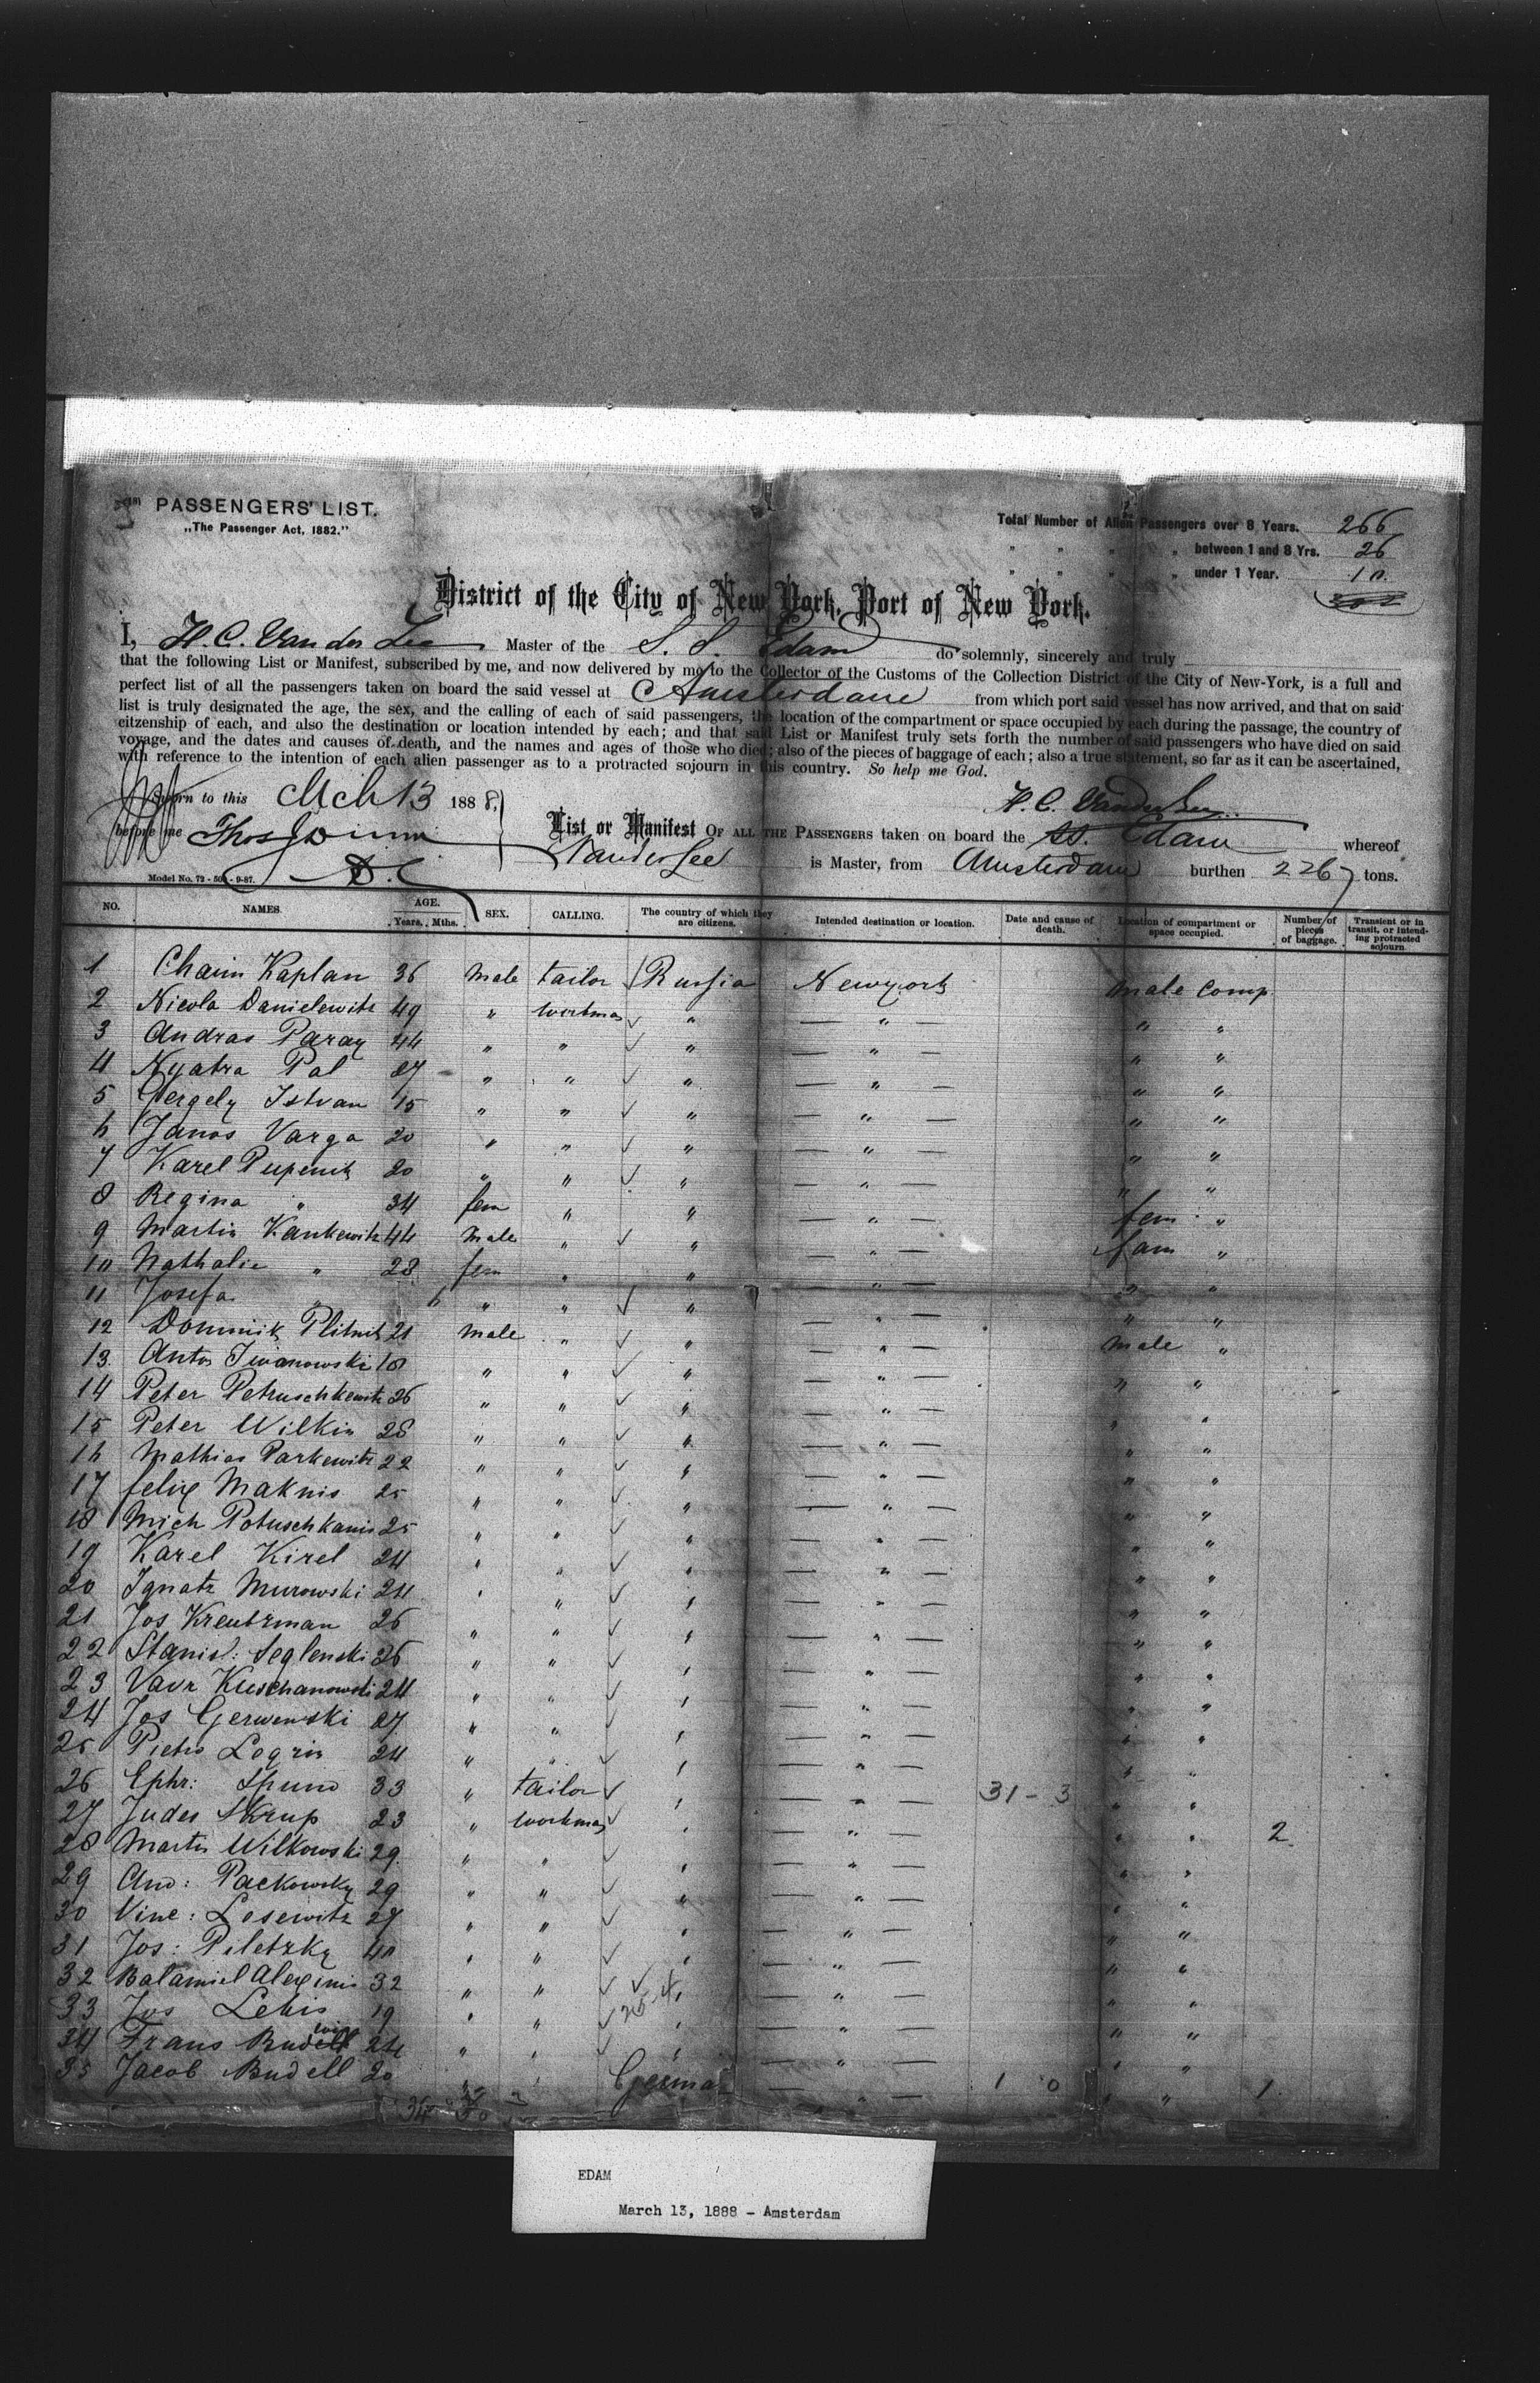 PASSENGERS' LIST.
„The Passenger Act, 1882."
Total Number of Alien Passengers over 8 Years. 266
" " " " between 1 and 8 Yrs. 26
" " " " under 1 Year. 10.
District of the City of New York, Port of New York.
I, H. C. Van der Zee Master of the S. S. Edam do solemnly, sincerely and truly
that the following List or Manifest, subscribed by me, and now delivered by me to the Collector of the Customs of the Collection District of the City of New-York, is a full and
perfect list of all the passengers taken on board the said vessel at Amsterdam from which port said vessel has now arrived, and that on said
list is truly designated the age, the sex, and the calling of each of said passengers, the location of the compartment or space occupied by each during the passage, the country of
citzenship of each, and also the destination or location intended by each; and that said List or Manifest truly sets forth the number of said passengers who have died on said
voyage, and the dates and causes of death, and the names and ages of those who died; also of the pieces of baggage of each; also a true statement, so far as it can be ascertained,
with reference to the intention of each alien passenger as to a protracted sojourn in this country. So help me God.
Sworn to this Mch 13 1888,
H. C. Vander Zee
before me Thos
List or Manifest OF ALL THE PASSENGERS taken on board the SS. Edam whereof
Vander Zee is Master, from Amsterdam burthen 2267 tons.
Model No. 72 - 500 - 9-87.
NO. NAMES. AGE. Years. Mths. SEX. CALLING. The country of which they are citizens. Intended destination or location. Date and cause of death. Location of compartment or space occupied. Number of pieces of baggage. Transient or in transit, or intending protracted sojourn.
1 Chaim Kaplan 36 male tailor Russia Newyork male comp.
2 Nicola Danielewitz 49 " workman " — " — " "
3 Andras Paray 44 " " " — " — " "
4 Nyatra Pal 27 " " " — " — " "
5 Gergely Istvan 15 " " " — " — " "
6 Janos Varga 20 " " " — " — " "
7 Karel 20 " " " — " — " "
8 Regina " 34 fem " " — " — fem "
9 Martin Kankewitz 44 male " " — " — fam "
10 Nathalie " 28 fem " " — " — " "
11 Josefa " 6 " " " — " — " "
12 Dominik 21 male " " — " — male "
13 Anton Iwanowski 18 " " " — " — " "
14 Peter Petruschkewitz 26 " " " — " — " "
15 Peter Wilkin 28 " " " — " — " "
16 Mathias Parkewitz 22 " " " — " — " "
17 felix Maknis 25 " " " — " — " "
18 Mich Potuschkanis 25 " " " — " — " "
19 Karel Kirel 24 " " " — " — " "
20 Ignatz Murowski 24 " " " — " — " "
21 Jos Kreutzman 26 " " " — " — " "
22 Stanisl: Seglenski 26 " " " — " — " "
23 Vavr Kuschanowski 24 " " " — " — " "
24 Jos Gerwenski 27 " " " — " — " "
25 Pietro Legrin 24 " " " — " — " "
26 Ephr: 33 " tailor " — " — 31 - 3 " "
27 Judes Skrup 23 " workman " — " — " " 2
28 Martin Wilkowski 29 " " " — " — " "
29 And: Packowsky 29 " " " — " — " "
30 Vinc: Losewitz 27 " " " — " — " "
31 Jos: Piletzky 40 " " " — " — " "
32 32 " " " — " — " "
33 Jos Lekis 19 " " " — " — " "
34 Frans 24 " " " — " — " "
35 Jacob Budell 20 " " German — " — 1 0 " " 1
EDAM
March 13, 1888 - Amsterdam